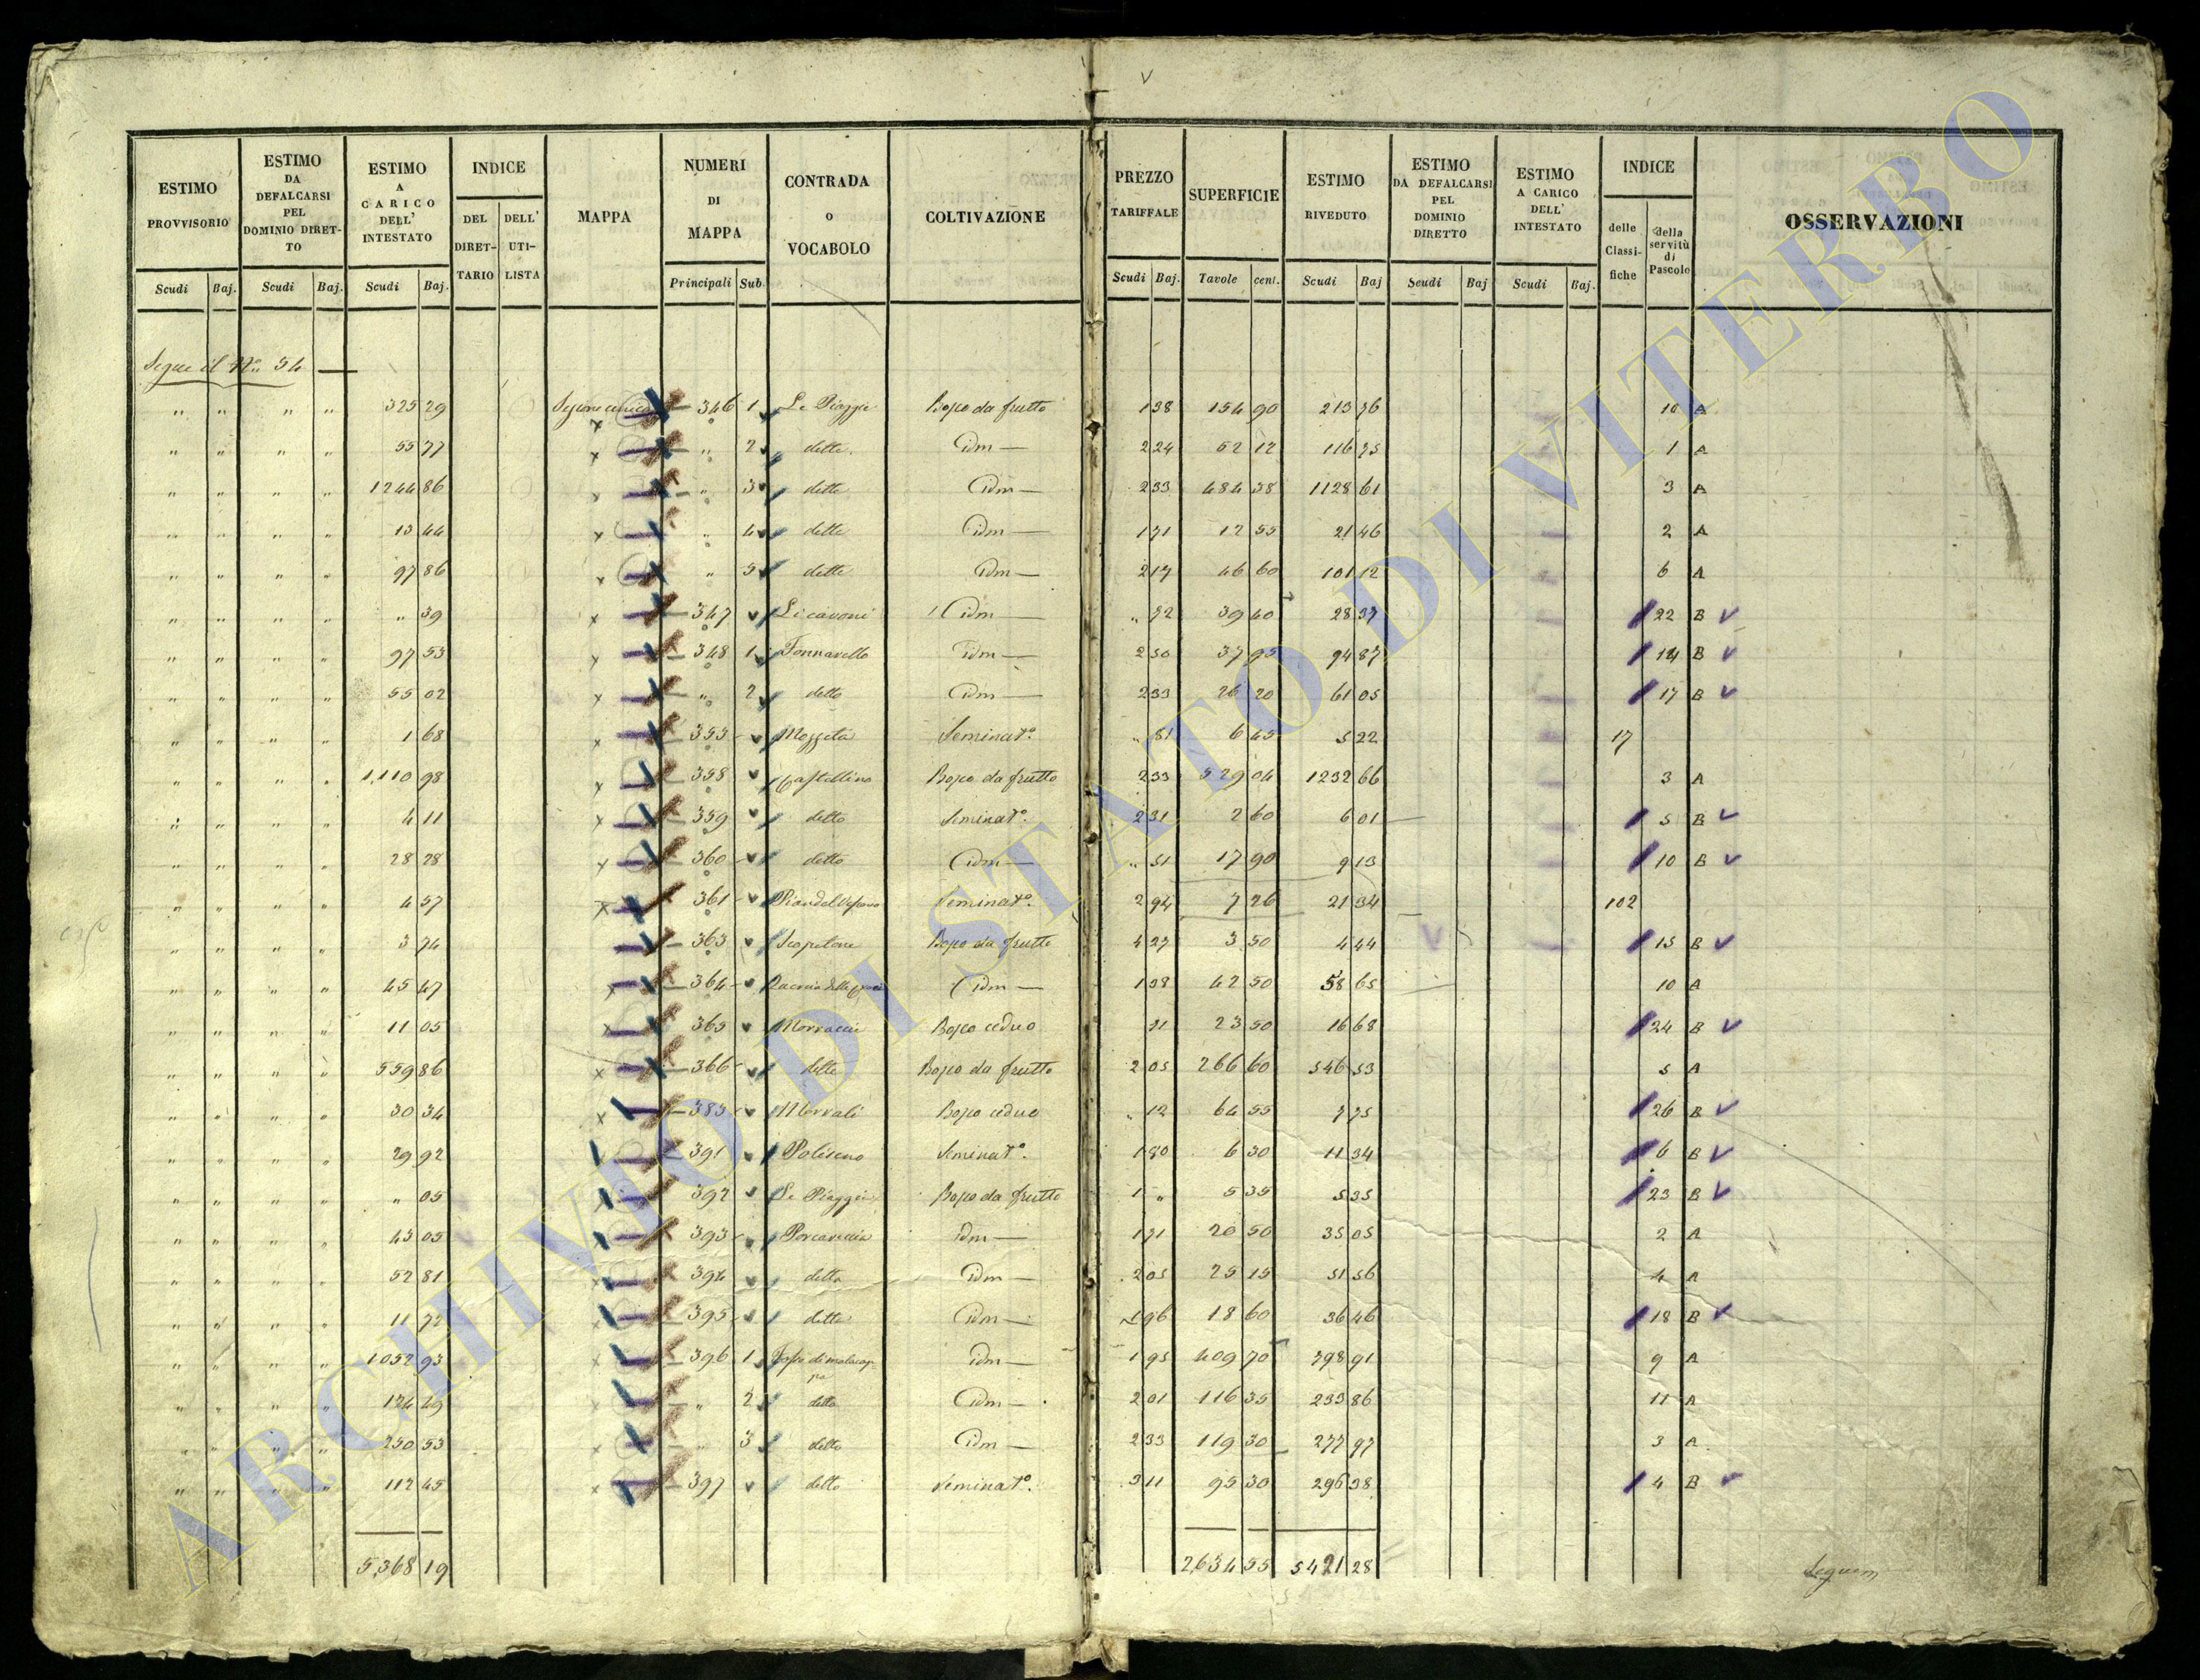 ESTIMO PROVVISORIO | ESTIMO DA DEFALCARSI PEL DOMINIO DIRETTO | ESTIMO A CARICO DELL' INTESTATO | INDICE | MAPPA | NUMERI DI MAPPA | CONTRADA o VOCABOLO | COLTIVAZIONE | PREZZO TARIFFALE | SUPERFICIE | ESTIMO RIVEDUTO | ESTIMO DA DEFALCARSI PEL DOMINIO DIRETTO | ESTIMO A CARICO DELL' INTESTATO | INDICE | OSSERVAZIONI
DEL DIRETTARIO | DELL' UTILISTA | delle Classifiche | della servitù di Pascolo
Scudi | Baj. | Scudi | Baj. | Scudi | Baj. | Principali | Sub. | Scudi | Baj. | Tavole | cent. | Scudi | Baj | Scudi | Baj | Scudi | Baj.
Segue il No. 54 —
" " " " 325 29 Sezione unica 346 1 Le Piagge Bosco da frutto 1 38 154 90 213 76 10 A
" " " " 55 77 " 2 dette Idm — 2 24 52 12 116 75 1 A
" " " " 1244 86 " 3 dette Idm — 2 33 484 38 1128 61 3 A
" " " " 13 44 " 4 dette Idm — 1 71 12 55 21 46 2 A
" " " " 97 86 " 5 dette Idm — 2 17 46 60 101 12 6 A
" " " " " 39 347 Li cavoni Idm — " 72 39 40 28 37 22 B
" " " " 97 53 348 1 Fonnarello Idm — 2 50 37 95 94 87 14 B
" " " " 55 02 " 2 detto Idm — 2 33 26 20 61 05 17 B
" " " " 1 68 353 Mozzeta Seminato. " 81 6 45 5 22 17
" " " " 1,110 98 358 Castellino Bosco da frutto 2 33 529 04 1232 66 3 A
" " " " 4 11 359 detto Seminato. 2 31 2 60 6 01 5 B
" " " " 28 28 360 detto Idm — " 51 17 90 9 13 10 B
" " " " 4 57 361 Seminato. 2 94 7 26 21 34 102
" " " " 3 74 363 Scopetone Bosco da frutto 1 27 3 50 4 44 15 B
" " " " 45 47 364 Idm — 1 38 42 50 58 65 10 A
" " " " 11 05 365 Morraccia Bosco ceduo 71 23 50 16 68 24 B
" " " " 559 86 366 detta Bosco da frutto 2 05 266 60 546 53 5 A
" " " " 30 34 383 Morrali Bosco ceduo " 12 64 55 7 75 26 B
" " " " 29 92 391 Poliseno Seminato. 1 80 6 30 11 34 6 B
" " " " " 05 392 Le Piagge Bosco da frutto 1 " 5 35 5 35 23 B
" " " " 43 05 393 Porcareccia Idm — 1 71 20 50 35 05 2 A
" " " " 52 81 394 detta Idm — 2 05 25 15 51 56 4 A
" " " " 11 72 395 detta Idm — 1 96 18 60 36 46 18 B
" " " " 1052 93 396 1 Fosso di malacappa Idm — 1 95 409 70 798 91 9 A
" " " " 124 49 " 2 detto Idm — 2 01 116 35 233 86 11 A
" " " " 250 53 " 3 detto Idm — 2 33 119 30 277 97 3 A
" " " " 112 45 397 detto Seminato. 3 11 95 30 296 38 4 B
5,368 19 2,634 55 5421 28
Seguem
ARCHIVIO DI STATO DI VITERBO